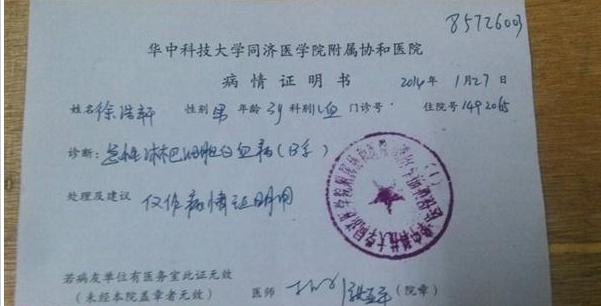 8572600
华中科技大学同济医学院附属协和医院
病情证明书 2014年1月27日
姓名徐浩轩 性别男 年龄3岁 科别儿血 门诊号 住院号1492065
诊断:急性淋巴细胞白血病(B系)
处理及建议 仅作病情证明用
若病友单位有医务室此证无效
(未经本院盖章者无效) 医师 (院章)